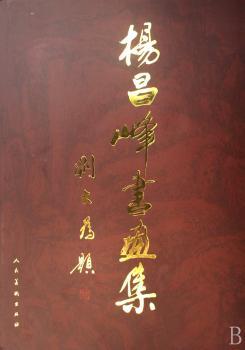 楊昌峰書畫集
劉大為題
人民美術出版社